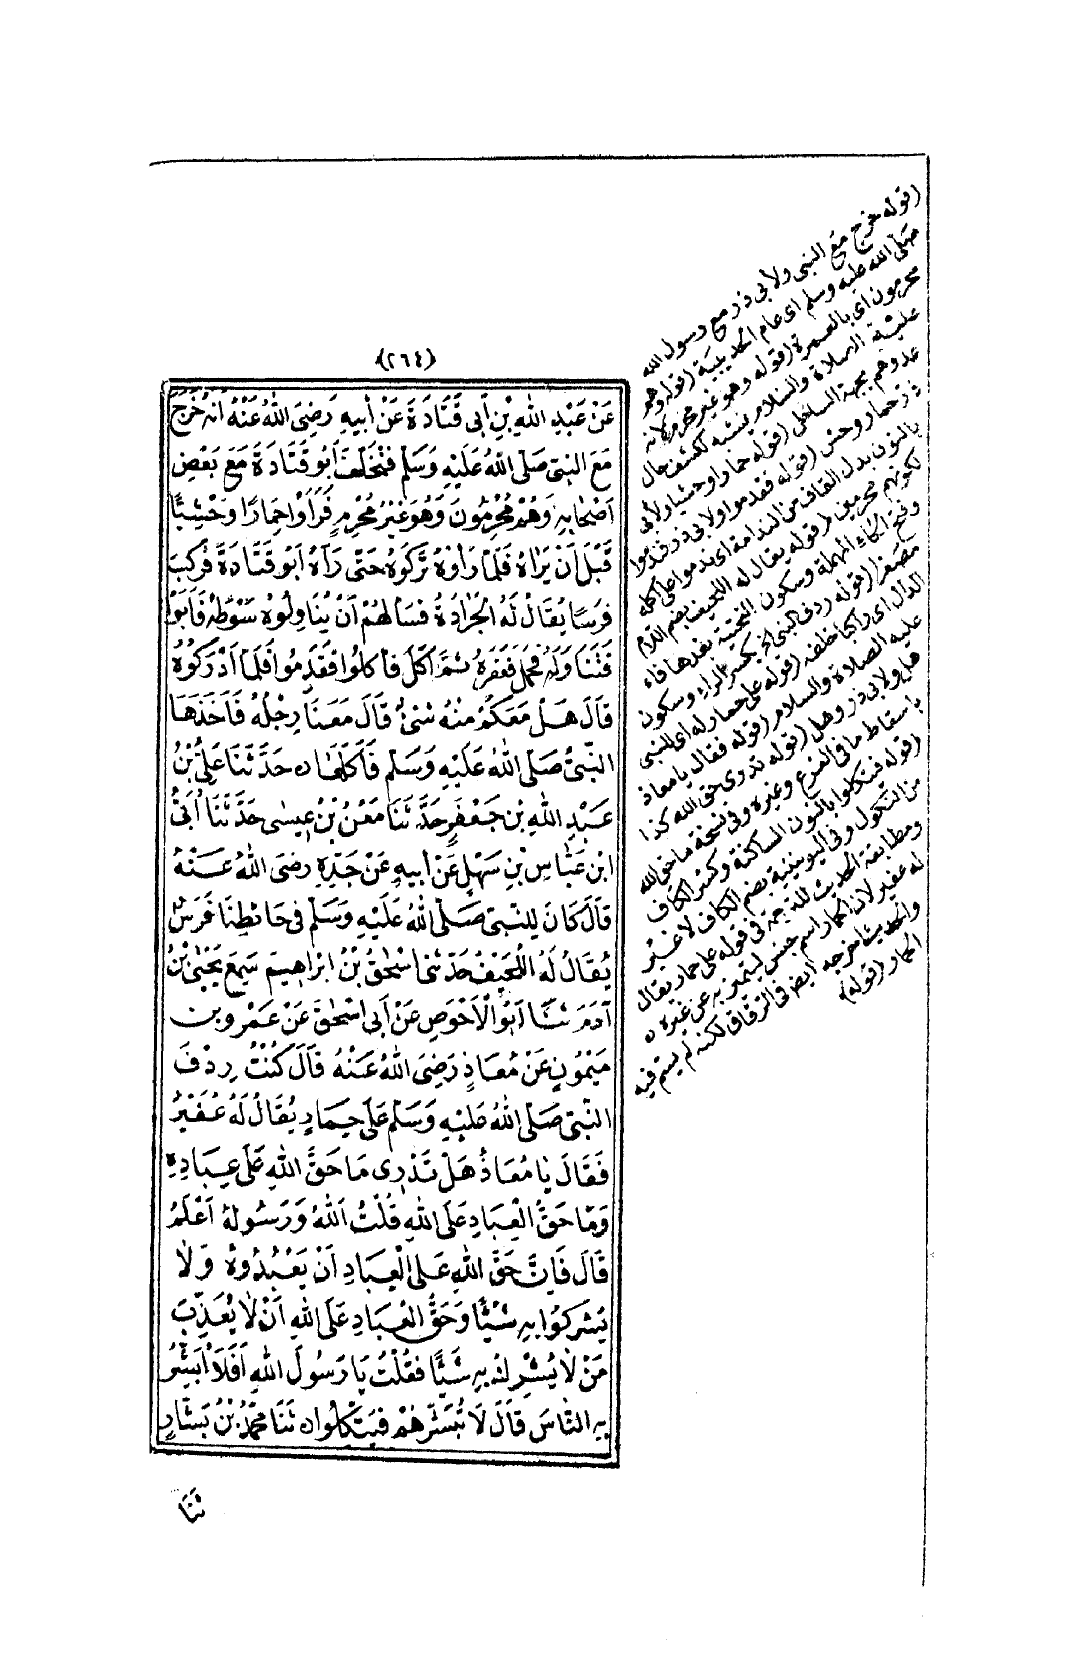 (٢٦٤)
عَنْ عَبْدِ اللهِ بْنِ أَبِى قَتَادَةَ عَنْ أَبِيهِ رَضِىَ اللهُ عَنْهُ أَنَّهُ خَرَجَ
مَعَ النَّبِىِّ صَلَّى اللهُ عَلَيْهِ وَسَلَّمَ فَتَخَلَّفَ أَبُو قَتَادَةَ مَعَ بَعْضِ
أَصْحَابِهِ وَهُمْ مُحْرِمُونَ وَهُوَ غَيْرُ مُحْرِمٍ فَرَأَوْا حِمَارًا وَحْشِيًّا
قَبْلَ أَنْ يَرَاهُ فَلَمَّا رَأَوْهُ تَرَكُوهُ حَتَّى رَآهُ أَبُو قَتَادَةَ فَرَكِبَ
فَرَسًا يُقَالُ لَهُ الْجَرَادَةُ فَسَأَلَهُمْ أَنْ يُنَاوِلُوهُ سَوْطَهُ فَأَبَوْا
فَتَنَاوَلَهُ فَحَمَلَ فَعَقَرَهُ ثُمَّ أَكَلَ فَأَكَلُوا فَقَدِمُوا فَلَمَّا أَدْرَكُوهُ
قَالَ هَلْ مَعَكُمْ مِنْهُ شَىْءٌ قَالَ مَعَنَا رِجْلُهُ فَأَخَذَهَا
النَّبِىُّ صَلَّى اللهُ عَلَيْهِ وَسَلَّمَ فَأَكَلَهَا ه حَدَّثَنَا عَلِىُّ بْنُ
عَبْدِ اللهِ بْنِ جَعْفَرٍ حَدَّثَنَا مَعْنُ بْنُ عِيسَى حَدَّثَنَا أُبَىُّ
ابْنُ عَبَّاسِ بْنِ سَهْلٍ عَنْ أَبِيهِ عَنْ جَدِّهِ رَضِىَ اللهُ عَنْهُ
قَالَ كَانَ لِلنَّبِىِّ صَلَّى اللهُ عَلَيْهِ وَسَلَّمَ فِى حَائِطِنَا فَرَسٌ
يُقَالُ لَهُ اللُّحَيْفُ حَدَّثَنَا إِسْحٰقُ بْنُ إِبْرَاهِيمَ سَمِعَ يَحْيَى بْنَ
آدَمَ ثَنَا أَبُو الْأَحْوَصِ عَنْ أَبِى إِسْحٰقَ عَنْ عَمْرِو بْنِ
مَيْمُونٍ عَنْ مُعَاذٍ رَضِىَ اللهُ عَنْهُ قَالَ كُنْتُ رِدْفَ
النَّبِىِّ صَلَّى اللهُ عَلَيْهِ وَسَلَّمَ عَلَى حِمَارٍ يُقَالُ لَهُ عُفَيْرٌ
فَقَالَ يَا مُعَاذُ هَلْ تَدْرِى مَا حَقُّ اللهِ عَلَى عِبَادِهِ
وَمَا حَقُّ الْعِبَادِ عَلَى اللهِ قُلْتُ اللهُ وَرَسُولُهُ أَعْلَمُ
قَالَ فَإِنَّ حَقَّ اللهِ عَلَى الْعِبَادِ أَنْ يَعْبُدُوهُ وَلَا
يُشْرِكُوا بِهِ شَيْئًا وَحَقُّ الْعِبَادِ عَلَى اللهِ أَنْ لَا يُعَذِّبَ
مَنْ لَا يُشْرِكُ بِهِ شَيْئًا فَقُلْتُ يَا رَسُولَ اللهِ أَفَلَا أُبَشِّرُ
بِهِ النَّاسَ قَالَ لَا تُبَشِّرْهُمْ فَيَتَّكِلُوا ه ثَنَا مُحَمَّدُ بْنُ بَشَّارٍ
ثَنَا
(قوله خرج مع النبى ولأبى ذر مع رسول الله
صلى الله عليه وسلم اى عام الحديبية (قوله وهم
محرمون اى بالعمرة (قوله وهو غير محرم لانه
عليه الصلاة والسلام بعثه لكشف حال
عدوهم بجهة الساحل (قوله حمارا وحشيا ولأبى
ذر حمار وحش (قوله فقدموا ولابى ذر فندموا
بالنون بدل القاف من الندامة اى ندموا على اكله
لكونهم محرمين (قوله يقال له اللحيف بضم اللام
وفتح الحاء المهملة وسكون التحتية بعدها فاء
مصغرا (قوله ردف النبى الخ بكسر الراء وسكون
الدال اى راكبا خلفه (قوله على حمار له اى للنبى
عليه الصلاة والسلام (قوله فقال يا معاذ
هل ولابى ذر وهل (قوله تدرى حق الله كذا
باسقاط ما فى الفرع وغيره وفى نسخة ما حق الله
(قوله فيتكلوا بالنون الساكنة وكسر الكاف
من النكول وفى اليونينية بضم الكاف لا غير
ومطابقة الحديث للترجمة فى قوله على حمار يقال
له عفير لان الحمار اسم جنس ليتميز به عن غيره ه
والحديث اخرجه ايضا فى الرقاق لكنه لم يسم فيه
الحمار (قوله)